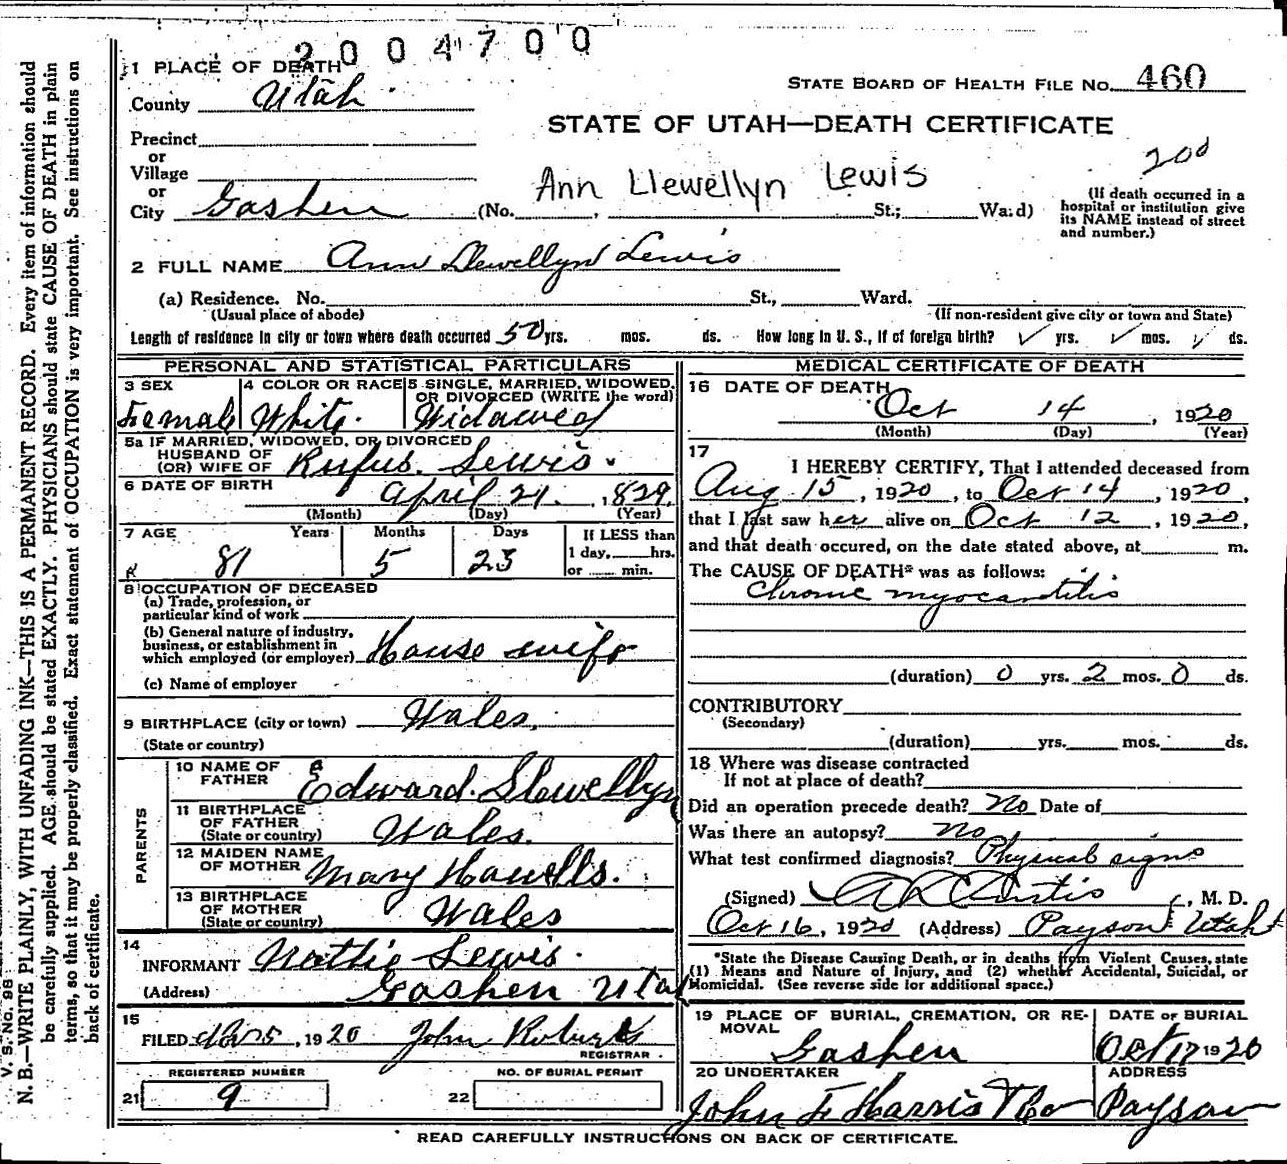 2004700
1 PLACE OF DEATH
STATE BOARD OF HEALTH FILE NO. 460
County Utah
STATE OF UTAH—DEATH CERTIFICATE
Precinct
or
Village
200
or
City Goshen (No. , Ann Llewellyn Lewis St.; Ward)
(If death occurred in a hospital or institution give its NAME instead of street and number.)
2 FULL NAME Ann Llewellyn Lewis
(a) Residence. No. St., Ward.
(Usual place of abode) (If non-resident give city or town and State)
Length of residence in city or town where death occurred 50 yrs. mos. ds. How long in U. S., if of foreign birth? ✓ yrs. ✓ mos. ✓ ds.
PERSONAL AND STATISTICAL PARTICULARS
3 SEX 4 COLOR OR RACE 5 SINGLE, MARRIED, WIDOWED,
OR DIVORCED (WRITE the word)
Female White. Widowed
5a IF MARRIED, WIDOWED, OR DIVORCED
HUSBAND OF
(OR) WIFE OF Rufus. Lewis.
6 DATE OF BIRTH April 21. , 1829
(Month) (Day) (Year)
7 AGE Years Months Days If LESS than
81 5 23 1 day, hrs.
or min.
8 OCCUPATION OF DECEASED
(a) Trade, profession, or
particular kind of work
(b) General nature of industry,
business, or establishment in
which employed (or employer) House wife
(c) Name of employer
9 BIRTHPLACE (city or town) Wales,
(State or country)
PARENTS
10 NAME OF
FATHER Edward. Llewellyn
11 BIRTHPLACE
OF FATHER
(State or country) Wales.
12 MAIDEN NAME
OF MOTHER Mary Howells.
13 BIRTHPLACE
OF MOTHER
(State or country) Wales
14
INFORMANT Nattie Lewis.
(Address) Goshen Utah
15
FILED , 1920 John Roberts
REGISTRAR.
REGISTERED NUMBER NO. OF BURIAL PERMIT
21 9 22
MEDICAL CERTIFICATE OF DEATH
16 DATE OF DEATH
Oct 14 , 1920
(Month) (Day) (Year)
17
I HEREBY CERTIFY, That I attended deceased from
Aug 15 , 1920 , to Oct 14 , 1920,
that I last saw her alive on Oct 12 , 1920,
and that death occured, on the date stated above, at m.
The CAUSE OF DEATH* was as follows:
Chronic myocarditis
(duration) 0 yrs. 2 mos. 0 ds.
CONTRIBUTORY
(Secondary)
(duration) yrs. mos. ds.
18 Where was disease contracted
If not at place of death?
Did an operation precede death? No Date of
Was there an autopsy? No
What test confirmed diagnosis? Physical signs
(Signed) Curtis , M. D.
Oct 16, 1920 (Address) Payson Utah
*State the Disease Causing Death, or in deaths from Violent Causes, state
(1) Means and Nature of Injury, and (2) whether Accidental, Suicidal, or
Homicidal. (See reverse side for additional space.)
19 PLACE OF BURIAL, CREMATION, OR RE-
MOVAL
DATE OF BURIAL
Goshen Oct 17 1920
20 UNDERTAKER ADDRESS
John F Harris & Co Payson
READ CAREFULLY INSTRUCTIONS ON BACK OF CERTIFICATE.
V. S. No. 98
N. B.—WRITE PLAINLY, WITH UNFADING INK—THIS IS A PERMANENT RECORD. Every item of information should
be carefully supplied. AGE should be stated EXACTLY. PHYSICIANS should state CAUSE OF DEATH in plain
terms, so that it may be properly classified. Exact statement of OCCUPATION is very important. See instructions on
back of certificate.